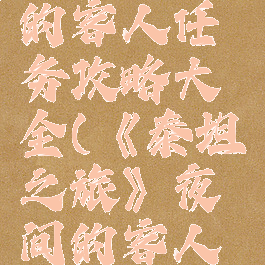 的客人任
务攻略大
全(《泰坦
之旅》夜
间的客人